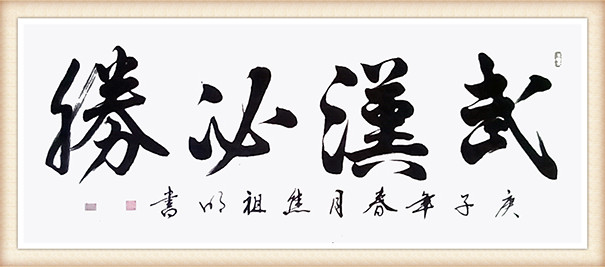 武漢必勝
庚子年春月焦祖明書